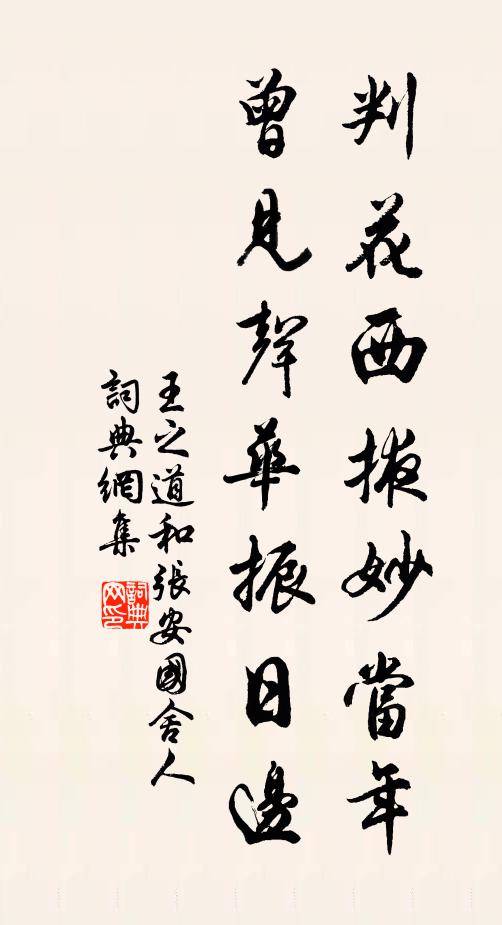 判花西掖妙當年
曾見聲華振日邊
王之道和張安國舍人
詞典網集
詞典网印